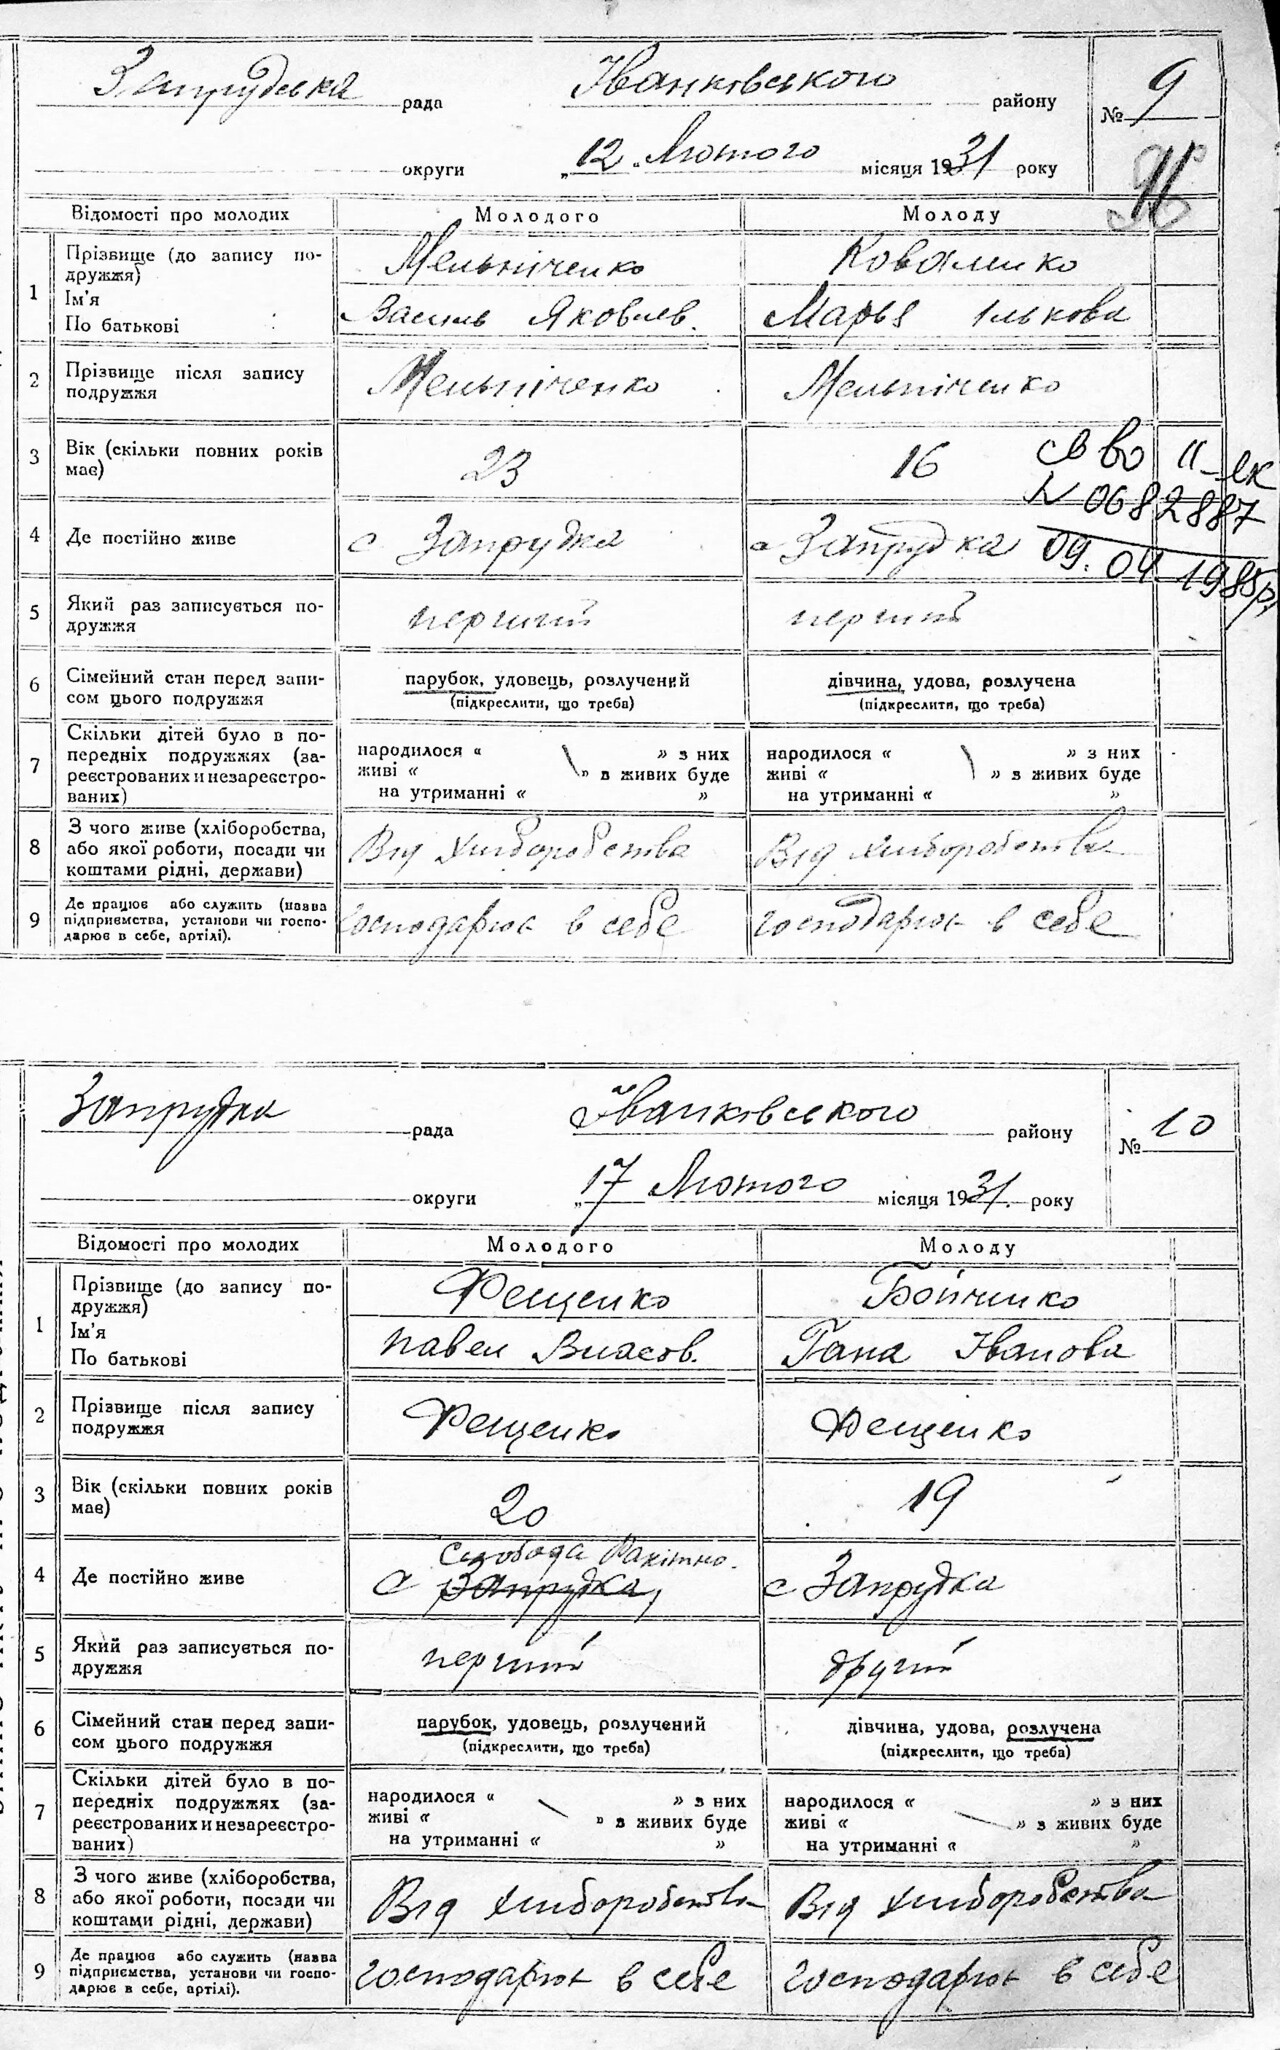 Запрудська рада Іванковського району № 9
округи „12" Лютого місяця 1931 року
Відомості про молодих Молодого Молоду
1 Прізвище (до запису по-
дружжя) Мельніченко Коваленко
Ім'я
По батькові Василь Яковлев. Марья Ількова
2 Прізвище після запису
подружжя Мельніченко Мельніченко
3 Вік (скільки повних років
має) 23 16
св во II-ЄК
N 0682887
09.04 1985р.
4 Де постійно живе с Запрудка с Запрудка
5 Який раз записується по-
дружжя перший перший
6 Сімейний стан перед запи-
сом цього подружжя
парубок, удовець, розлучений дівчина, удова, розлучена
(підкреслити, що треба) (підкреслити, що треба)
7 Скільки дітей було в по-
передніх подружжях (за-
реєстрованих и незареєстро-
ваних)
народилося « » з них народилося « » з них
живі « » в живих буде живі « » з живих буде
на утриманні « » на утриманні « »
8 З чого живе (хліборобства,
або якої роботи, посади чи
коштами рідні, держави)
Від хліборобства Від хліборобства
9 Де працює або служить (назва
підприємства, установи чи госпо-
дарює в себе, артілі).
господарює в себе господарює в себе
Запрудка рада Іванковського району № 10
округи „17 Лютого місяця 1931. року
Відомості про молодих Молодого Молоду
1 Прізвище (до запису по-
дружжя) Фещенко Бойченко
Ім'я
По батькові Павел Власов. Гана Іванова
2 Прізвище після запису
подружжя Фещенко Фещенко
3 Вік (скільки повних років
має) 20 19
Слобода Ракітно.
4 Де постійно живе с Запрудка, с Запрудка
5 Який раз записується по-
дружжя перший другий
6 Сімейний стан перед запи-
сом цього подружжя
парубок, удовець, розлучений дівчина, удова, розлучена
(підкреслити, що треба) (підкреслити, що треба)
7 Скільки дітей було в по-
передніх подружжях (за-
реєстрованих и незареєстро-
ваних)
народилося « » з них народилося « » з них
живі « » в живих буде живі « » з живих буде
на утриманні « » на утриманні « »
8 З чого живе (хліборобства,
або якої роботи, посади чи
коштами рідні, держави)
Від хліборобства Від хліборобства
9 Де працює або служить (назва
підприємства, установи чи госпо-
дарює в себе, артілі).
господарює в себе господарює в себе